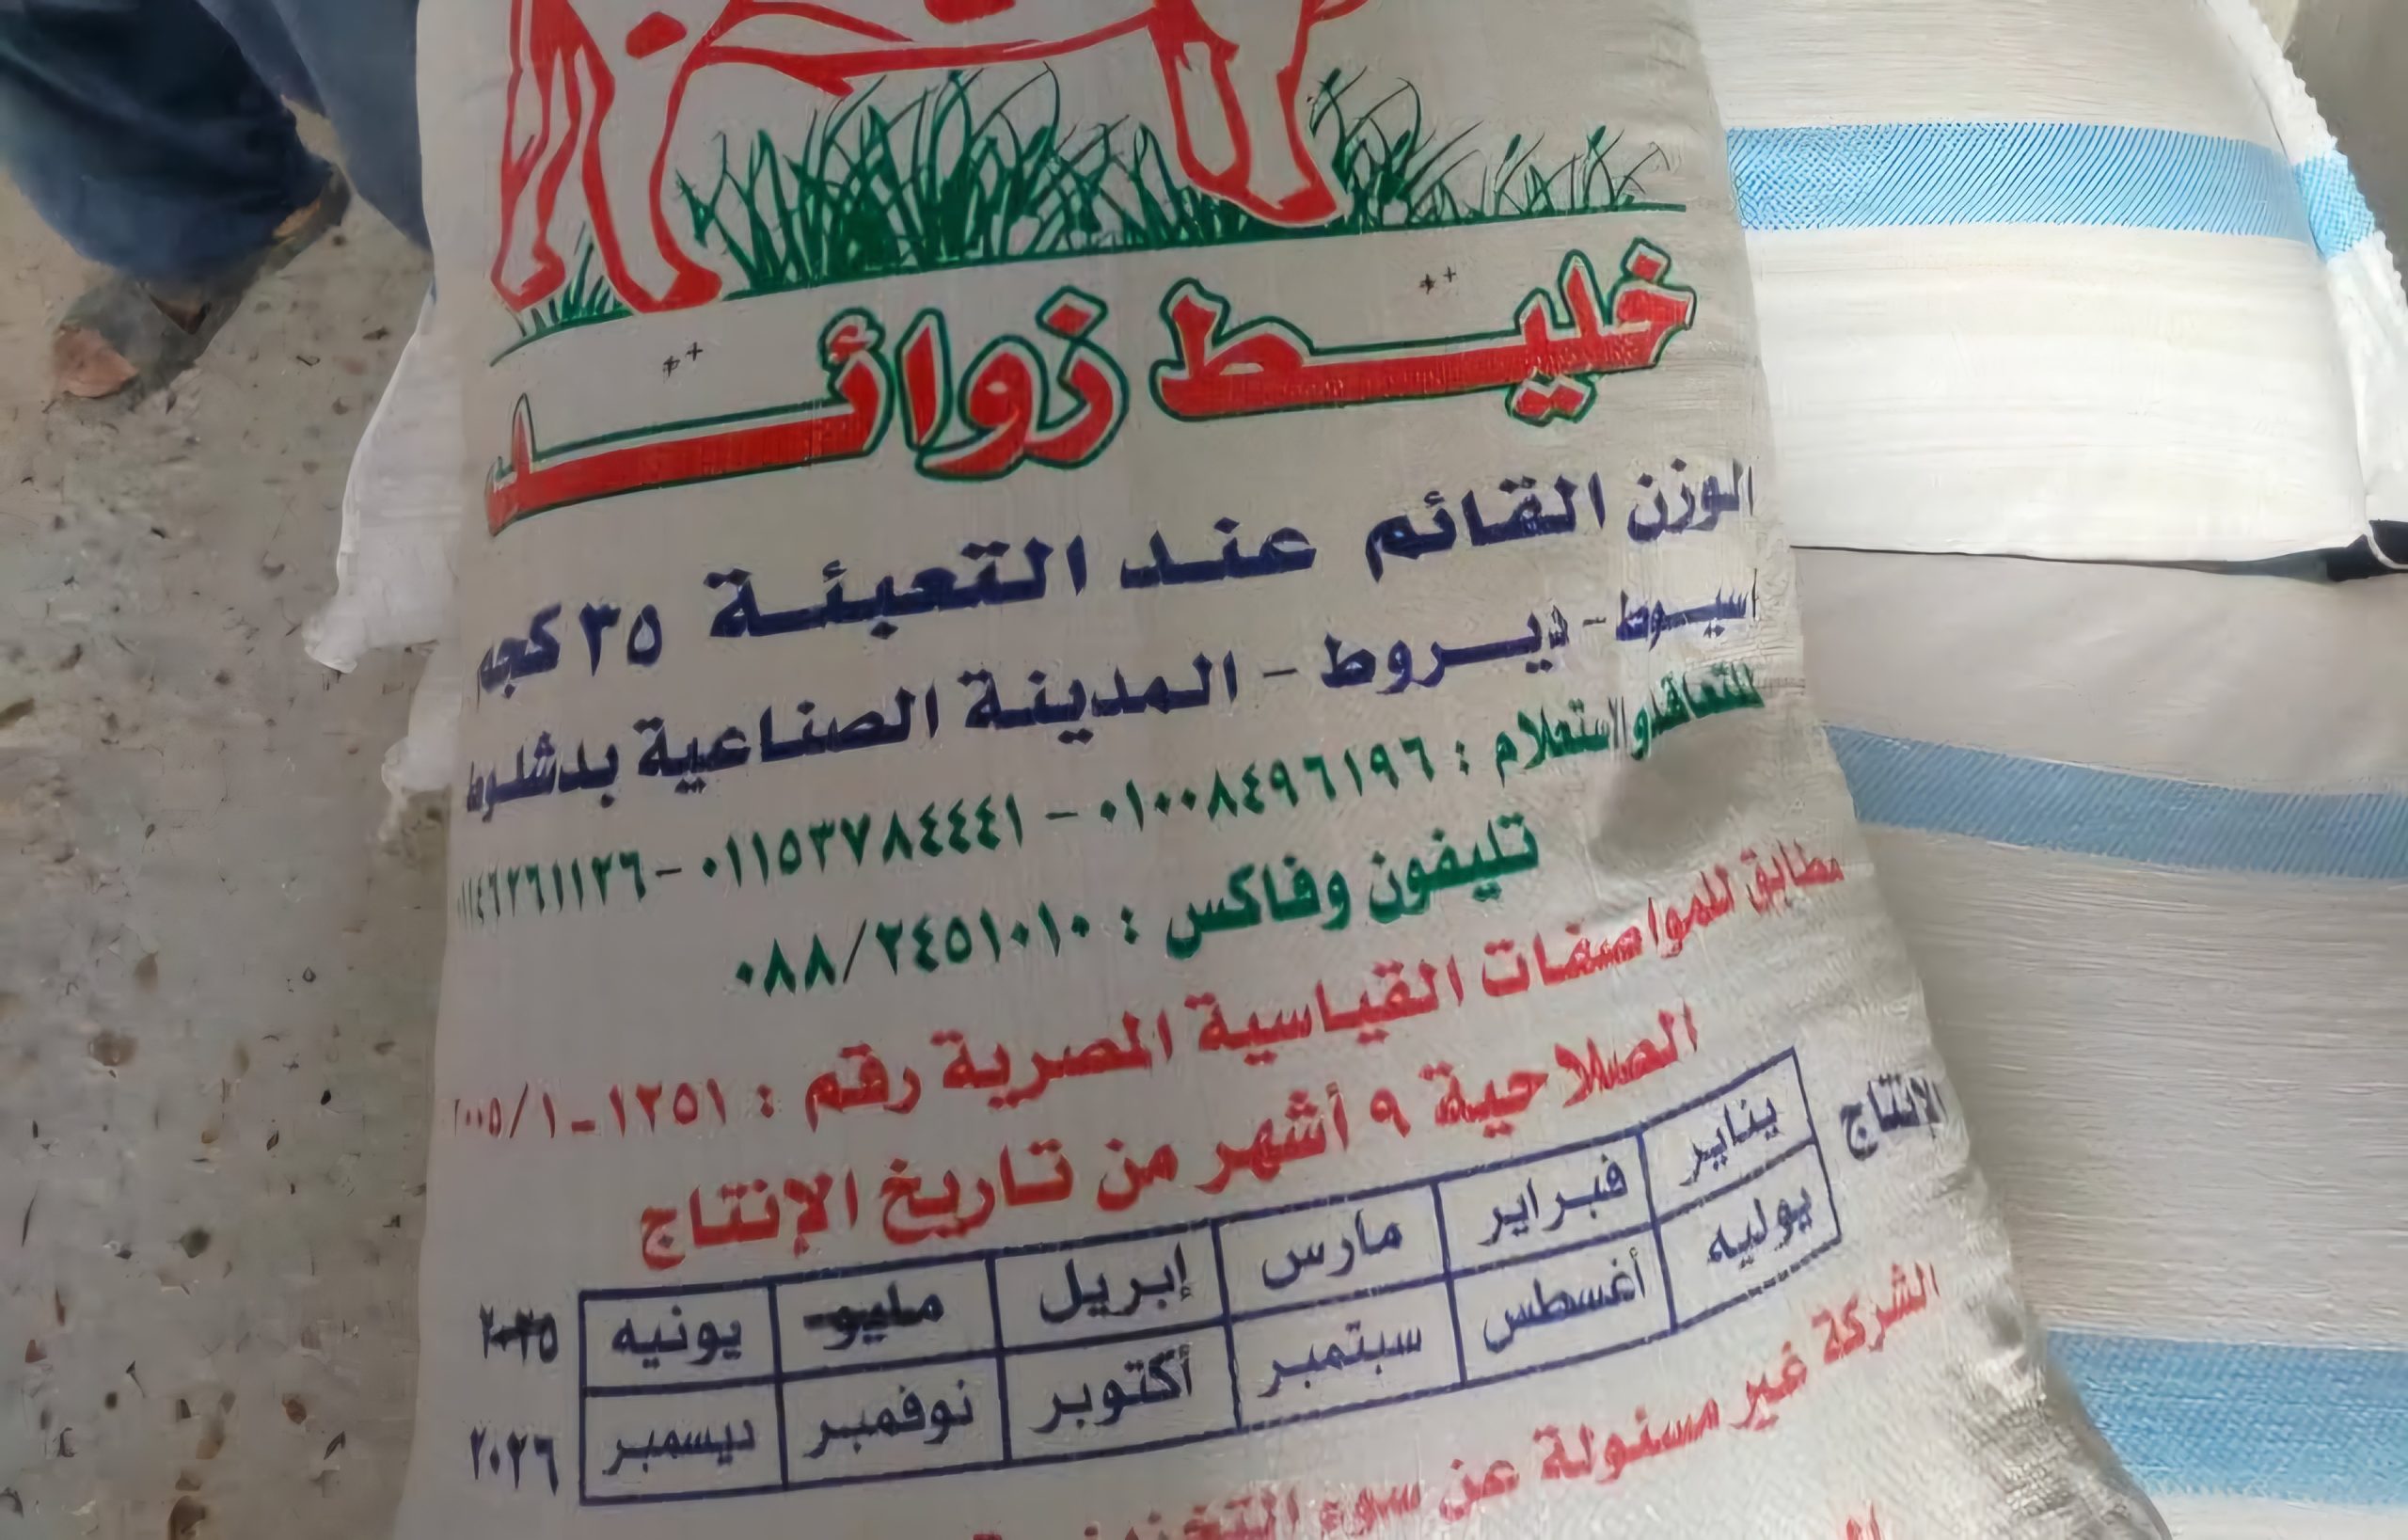 خليط زوائد
الوزن القائم عند التعبئة ٣٥ كجم
اسيوط - ديروط - المدينة الصناعية بدشلوط
للتعاقد والاستعلام : ٠١٠٠٨٤٩٦١٩٦ - ٠١١٥٣٧٨٤٤٤١ - ٠١١٤٦٢٦١١٢٦
تليفون وفاكس : ٠٨٨/٢٤٥١٠١٠
مطابق للمواصفات القياسية المصرية رقم : ١٢٥١-٢٠٠٥/١
الصلاحية ٩ أشهر من تاريخ الإنتاج
الإنتاج
يناير فبراير مارس إبريل مايو يونيه ٢٠٢٥
يوليه أغسطس سبتمبر أكتوبر نوفمبر ديسمبر ٢٠٢٦
الشركة غير مسئولة عن سوء التخزين